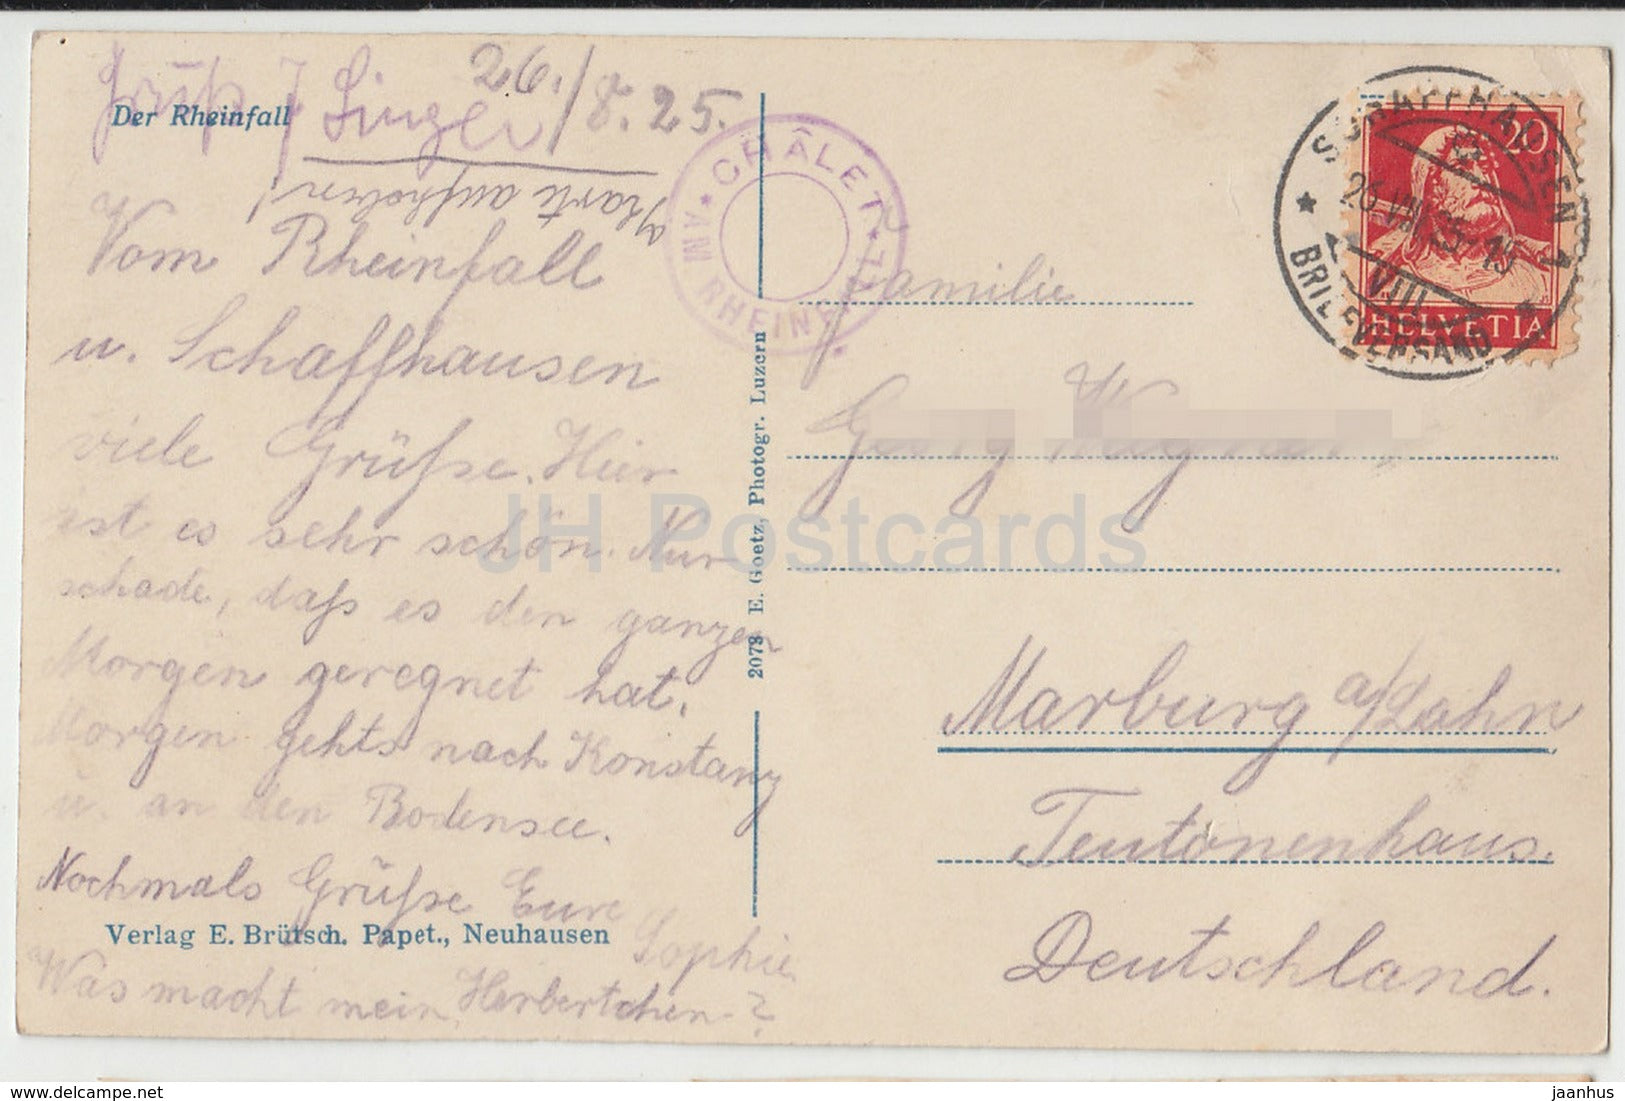 26./8.25.
Gruß J Singer
Der Rheinfall
Karte aufheben!
Vom Rheinfall
u. Schaffhausen
viele Grüße. Hier
ist es sehr schön. Nur
schade, daß es den ganzen
Morgen geregnet hat.
Morgen gehts nach Konstanz
u. an den Bodensee.
Nochmals Grüße Eure
Sophie
Was macht mein Herbertchen?
Verlag E. Brütsch. Papet., Neuhausen
2073 E. Goetz, Photogr. Luzern
★ CHÂLET ★
AM RHEINFALL
SCHAFFHAUSEN 1
26.VIII.25.-15
VIII
★ BRIEFVERSAND ★
20
HELVETIA
Familie
Georg
Marburg a/Lahn
Teutonenhaus.
Deutschland.
JH Postcards
delcampe.net
jaanhus